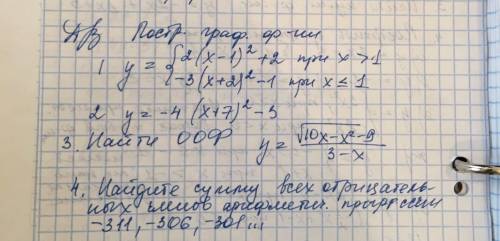 ДЗ Постр. граф. ф-ии
1 y = { 2(x-1)² +2 при x >1
-3(x+2)² -1 при x ≤ 1
2 y = -4 (x+7)² -3
3. Найти ООФ y = √(10x-x²-9) / (3-x)
4. Найдите сумму всех отрицатель-
ных членов арифметич. прогрессии
-311, -306, -301...